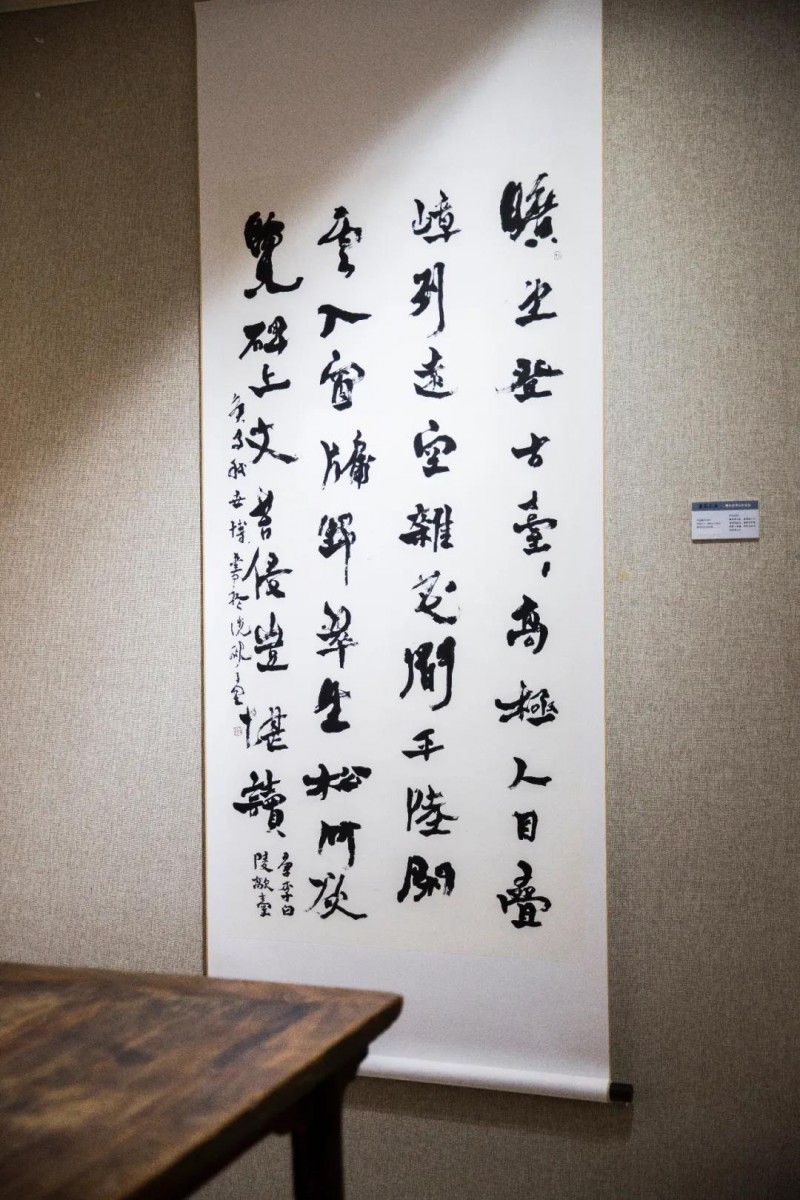 曠望登古臺、高極人目疊
嶂列遠空雜花間平陸閑
雲入窗牖野翠生松竹欲
覽碑上文苔侵豈堪讀
唐李白
陵歊臺
書於洗硯